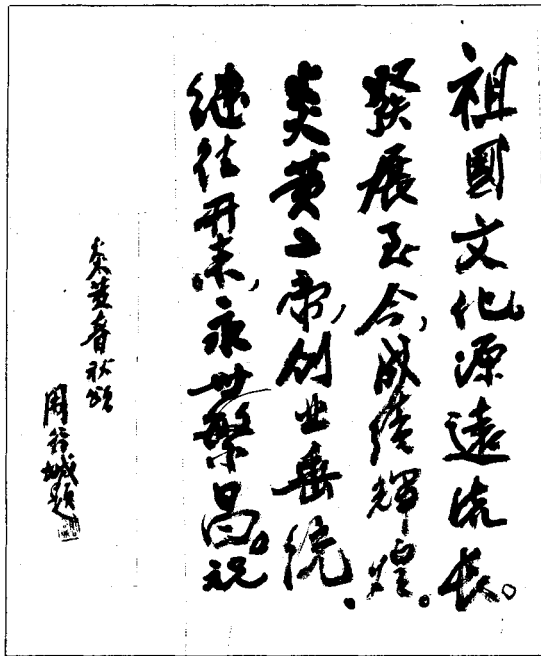 祖國文化,源遠流長。
發展至今,成績輝煌。
炎黄二帝,創业垂统.
继往开来,永世繁昌。祝
炎黄春秋頌
周谷城题